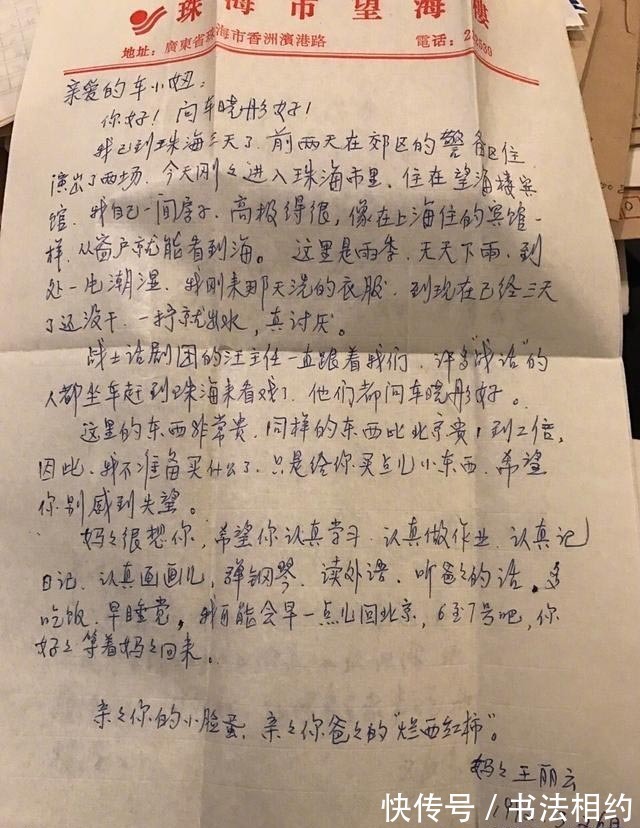 珠海市望海樓
地址：廣東省珠海市香洲濱港路 電話：
亲爱的车小妞：
你好！问车晓彤好！
我已到珠海三天了，前两天在郊区的警备区住，
演出了两场，今天刚々进入珠海市里，住在望海楼宾
馆，我自己一间房子，高极得很，像在上海住的宾馆一
样，从窗户就能看到海。这里是雨季，天天下雨，到
处一片潮湿，我刚来那天洗的衣服，到现在已经三天
了还没干，一拧就出水，真讨厌。
战士话剧团的汪主任一直跟着我们，许多“战话”的
人都坐车赶到珠海来看戏了，他们都问车晓彤好。
这里的东西非常贵，同样的东西比北京贵1到2倍，
因此，我不准备买什么了，只是给你买点儿小东西，希望
你别感到失望。
妈々很想你，希望你认真学习，认真做作业，认真记
日记，认真画画儿，弹钢琴，读外语，听爸々的话，多
吃饭，早睡觉，我可能会早一点儿回北京，6至7号吧，你
好々等着妈々回来。
亲々你的小脸蛋，亲々你爸々的“烂西红柿”。
妈々 王丽云
快传号/书法相约